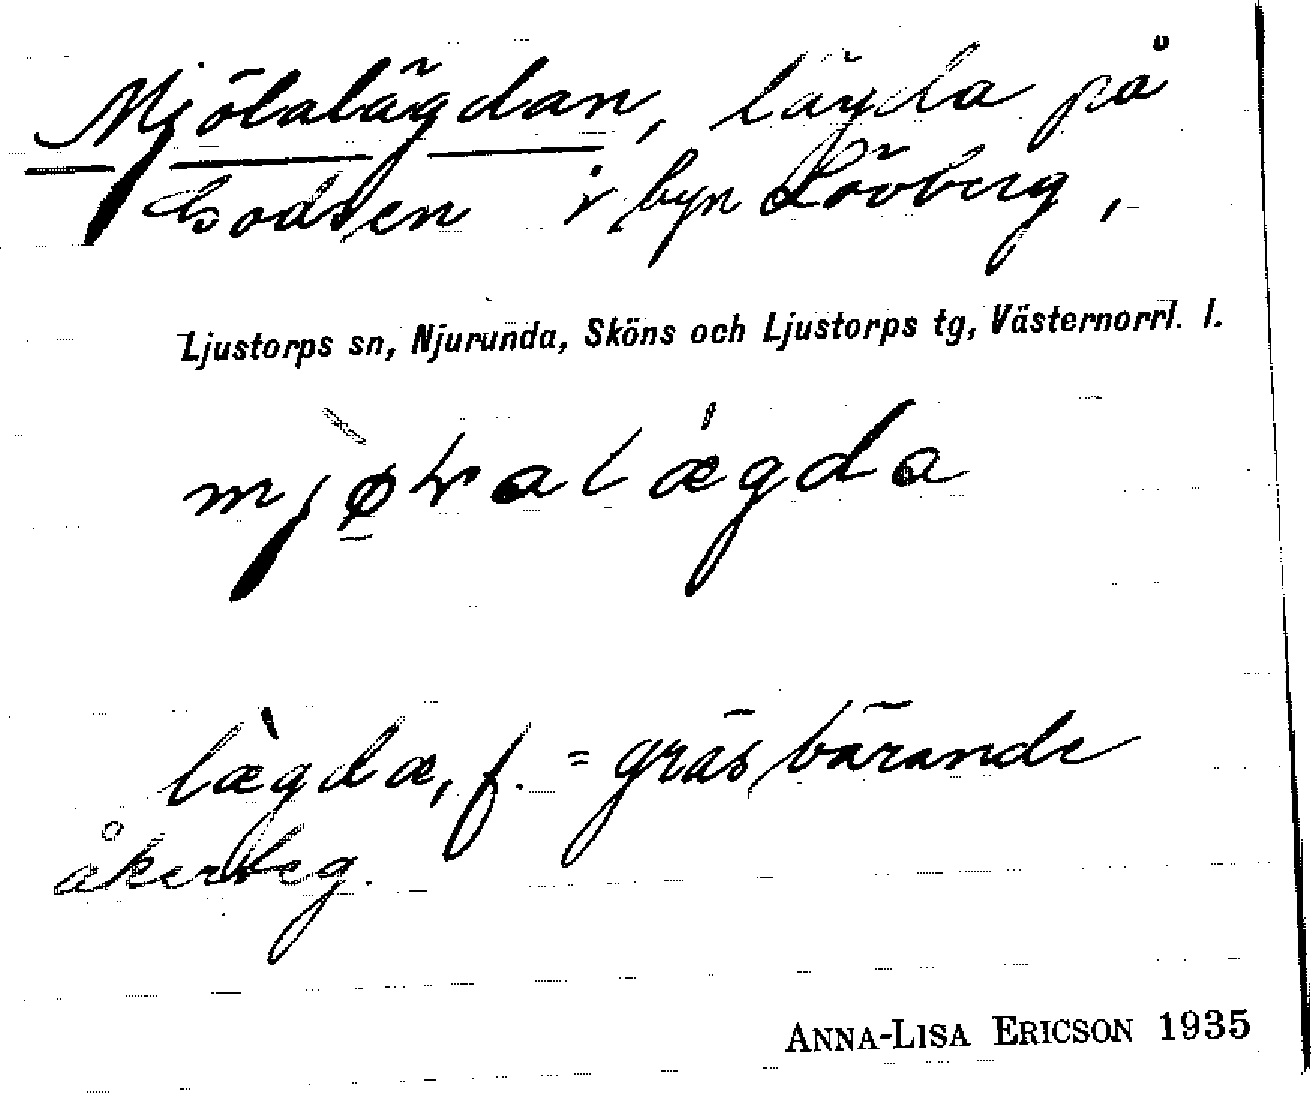 Mjölalägdan, lägda på
bodsen i byn Lövberg,
Ljustorps sn, Njurunda, Sköns och Ljustorps tg, Västernorrl. l.
lægdæ, f. = gräsbärande
åkerteg.
ANNA-LISA ERICSON 1935